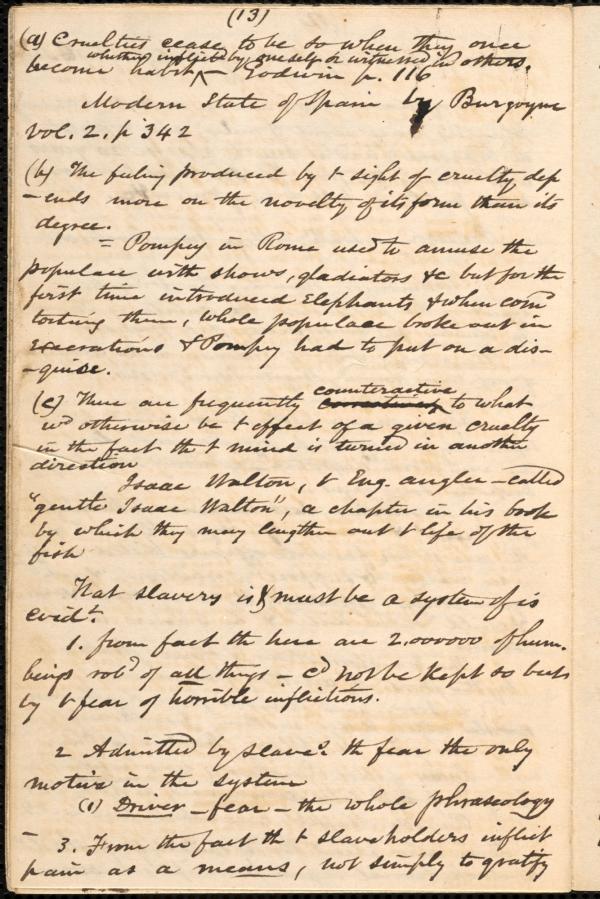 (13)
(a) Cruelties cease to be so when they once
whether inflicted by oneself or witnessed in others.
become habit ^ — Godwin p. 116
Modern State of Spain by Burgoyne
vol. 2. p 342
(b) The feeling produced by t sight of cruelty dep
-ends more on the novelty of its form than its
degree.
= Pompey in Rome used to amuse the
populace with shows, gladiators &c but for the
first time introduced Elephants & when com
torting them, whole populace broke out in
Execrations & Pompey had to put on a dis-
-guise.
counteractive
(c) There are frequently to what
wd otherwise be t effect of a given cruelty
in the fact th t mind is turned in another
direction
Isaac Walton, t Eng. angler — called
"gentle Isaac Walton", a chapter in his book
by which they may lengthen out t life of the
fish
That slavery is & must be a system of is
evidt.
1. from fact th here are 2.000000 of hum.
beings robd of all things — cd not be kept so but
by t fear of horrible inflictions.
2 Admitted by slaves. th fear the only
motive in the system
(1) Driver — fear — the whole phraseology
— 3. From the fact th t slaveholders inflict
pain as a means, not simply to gratify